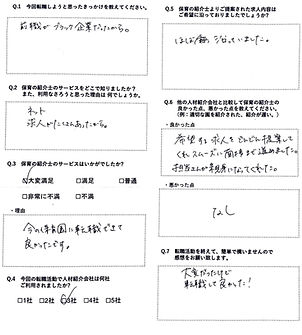 Q.1 今回転職しようと思ったきっかけを教えてください。
前職がブラック企業だったから。
Q.2 保育の紹介士のサービスをどこで知りましたか?
また、利用なさろうと思った理由は何でしょうか。
ネット
求人がたくさんあったから。
Q.3 保育の紹介士のサービスはいかがでしたか?
大変満足 □満足 □普通
□非常に不満 □不満
・理由
今の保育園に転職できて
良かったです。
Q.4 今回の転職活動で人材紹介会社は何社
ご利用されましたか?
□1社 □2社 3社 □4社 □5社
Q.5 保育の紹介士よりご提案された求人内容は
ご希望に沿っておりましたでしょうか?
ほとんど沿っていました。
Q.6 他の人材紹介会社と比較して保育の紹介士の
良かった点、悪かった点を教えてください。
(例:適切な園を紹介された、紹介が遅い。)
・良かった点
希望する求人をどんどん提案して
くれスムーズに面接まで進めました。
担当さんが親身になってくれた。
・悪かった点
なし
Q.7 転職活動を終えて、簡単で構いませんので
感想をお願い致します。
大変だったけど
転職して良かった!